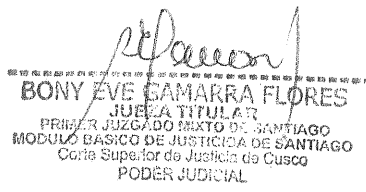 BONY EVE GAMARRA FLORES
JUEZA TITULAR
PRIMER JUZGADO MIXTO DE SANTIAGO
MODULO BASICO DE JUSTICIA DE SANTIAGO
Corte Superior de Justicia de Cusco
PODER JUDICIAL